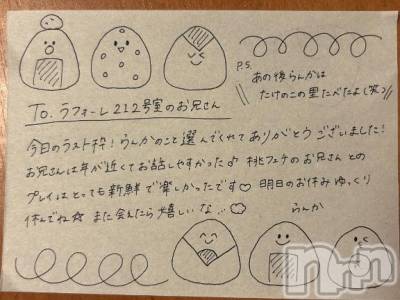 P.S.
あの後らんかは
たけのこの里たべたよ(笑)
To. ラフォーレ212号室のお兄さん
今日のラスト枠!らんかのこと選んでくれてありがとうございました!
お兄さんは年が近くてお話しやすかった♪ 桃フェチのお兄さんとの
プレイはとっても新鮮で楽しかったです♡ 明日のお休みゆっくり
休んでね☆ また会えたら嬉しいな…
らんか